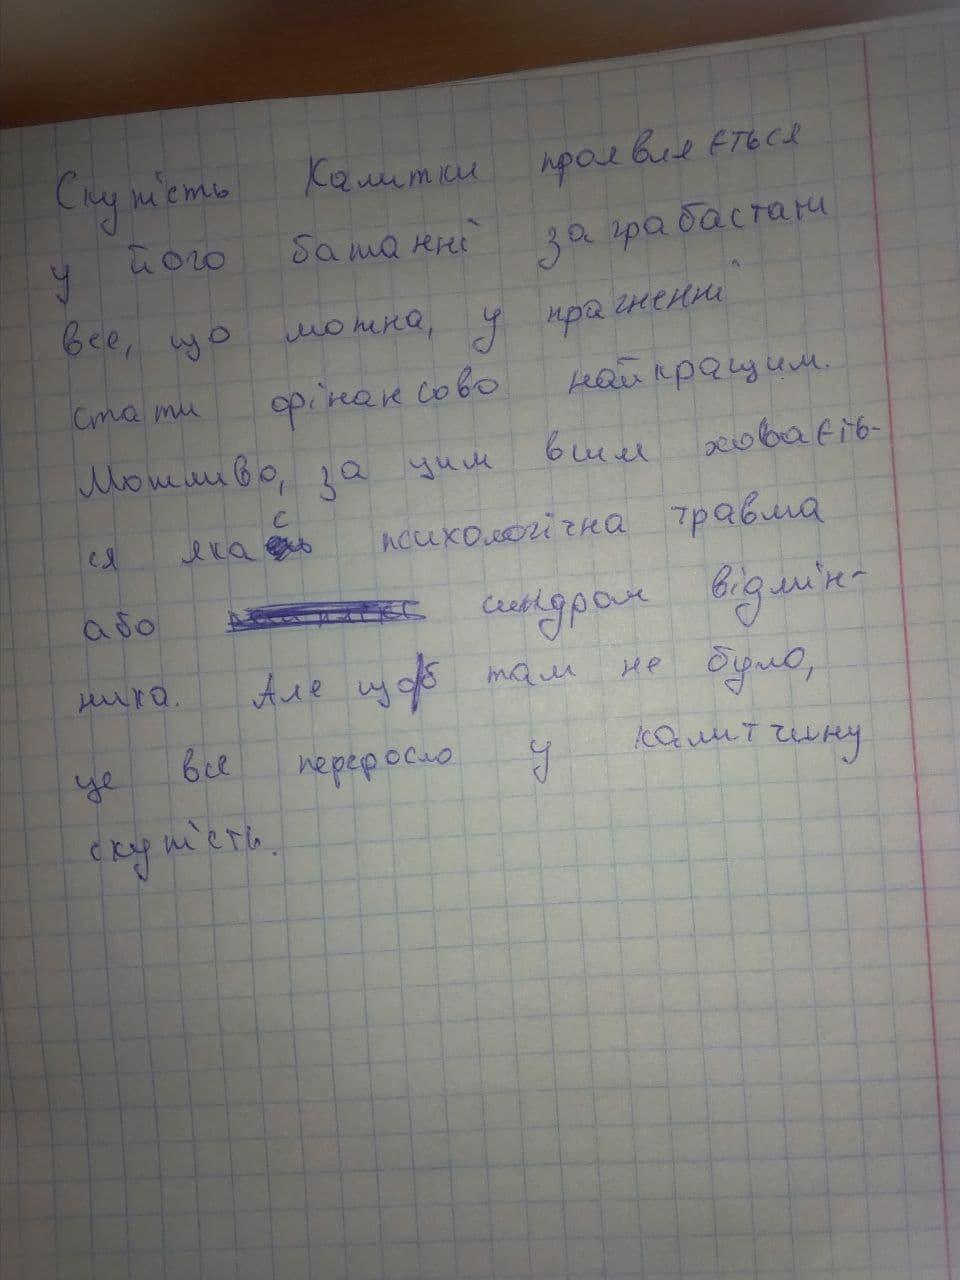 Скупість Калитки проявляється
у його бажанні заграбастати
все, що можна, у прагненні
стати фінансово найкращим.
Можливо, за цим всим ховаєть-
ся якась психологічна травма
або синдром відмін-
ника. Але щоб там не було,
це все переросло у калитчину
скупість.